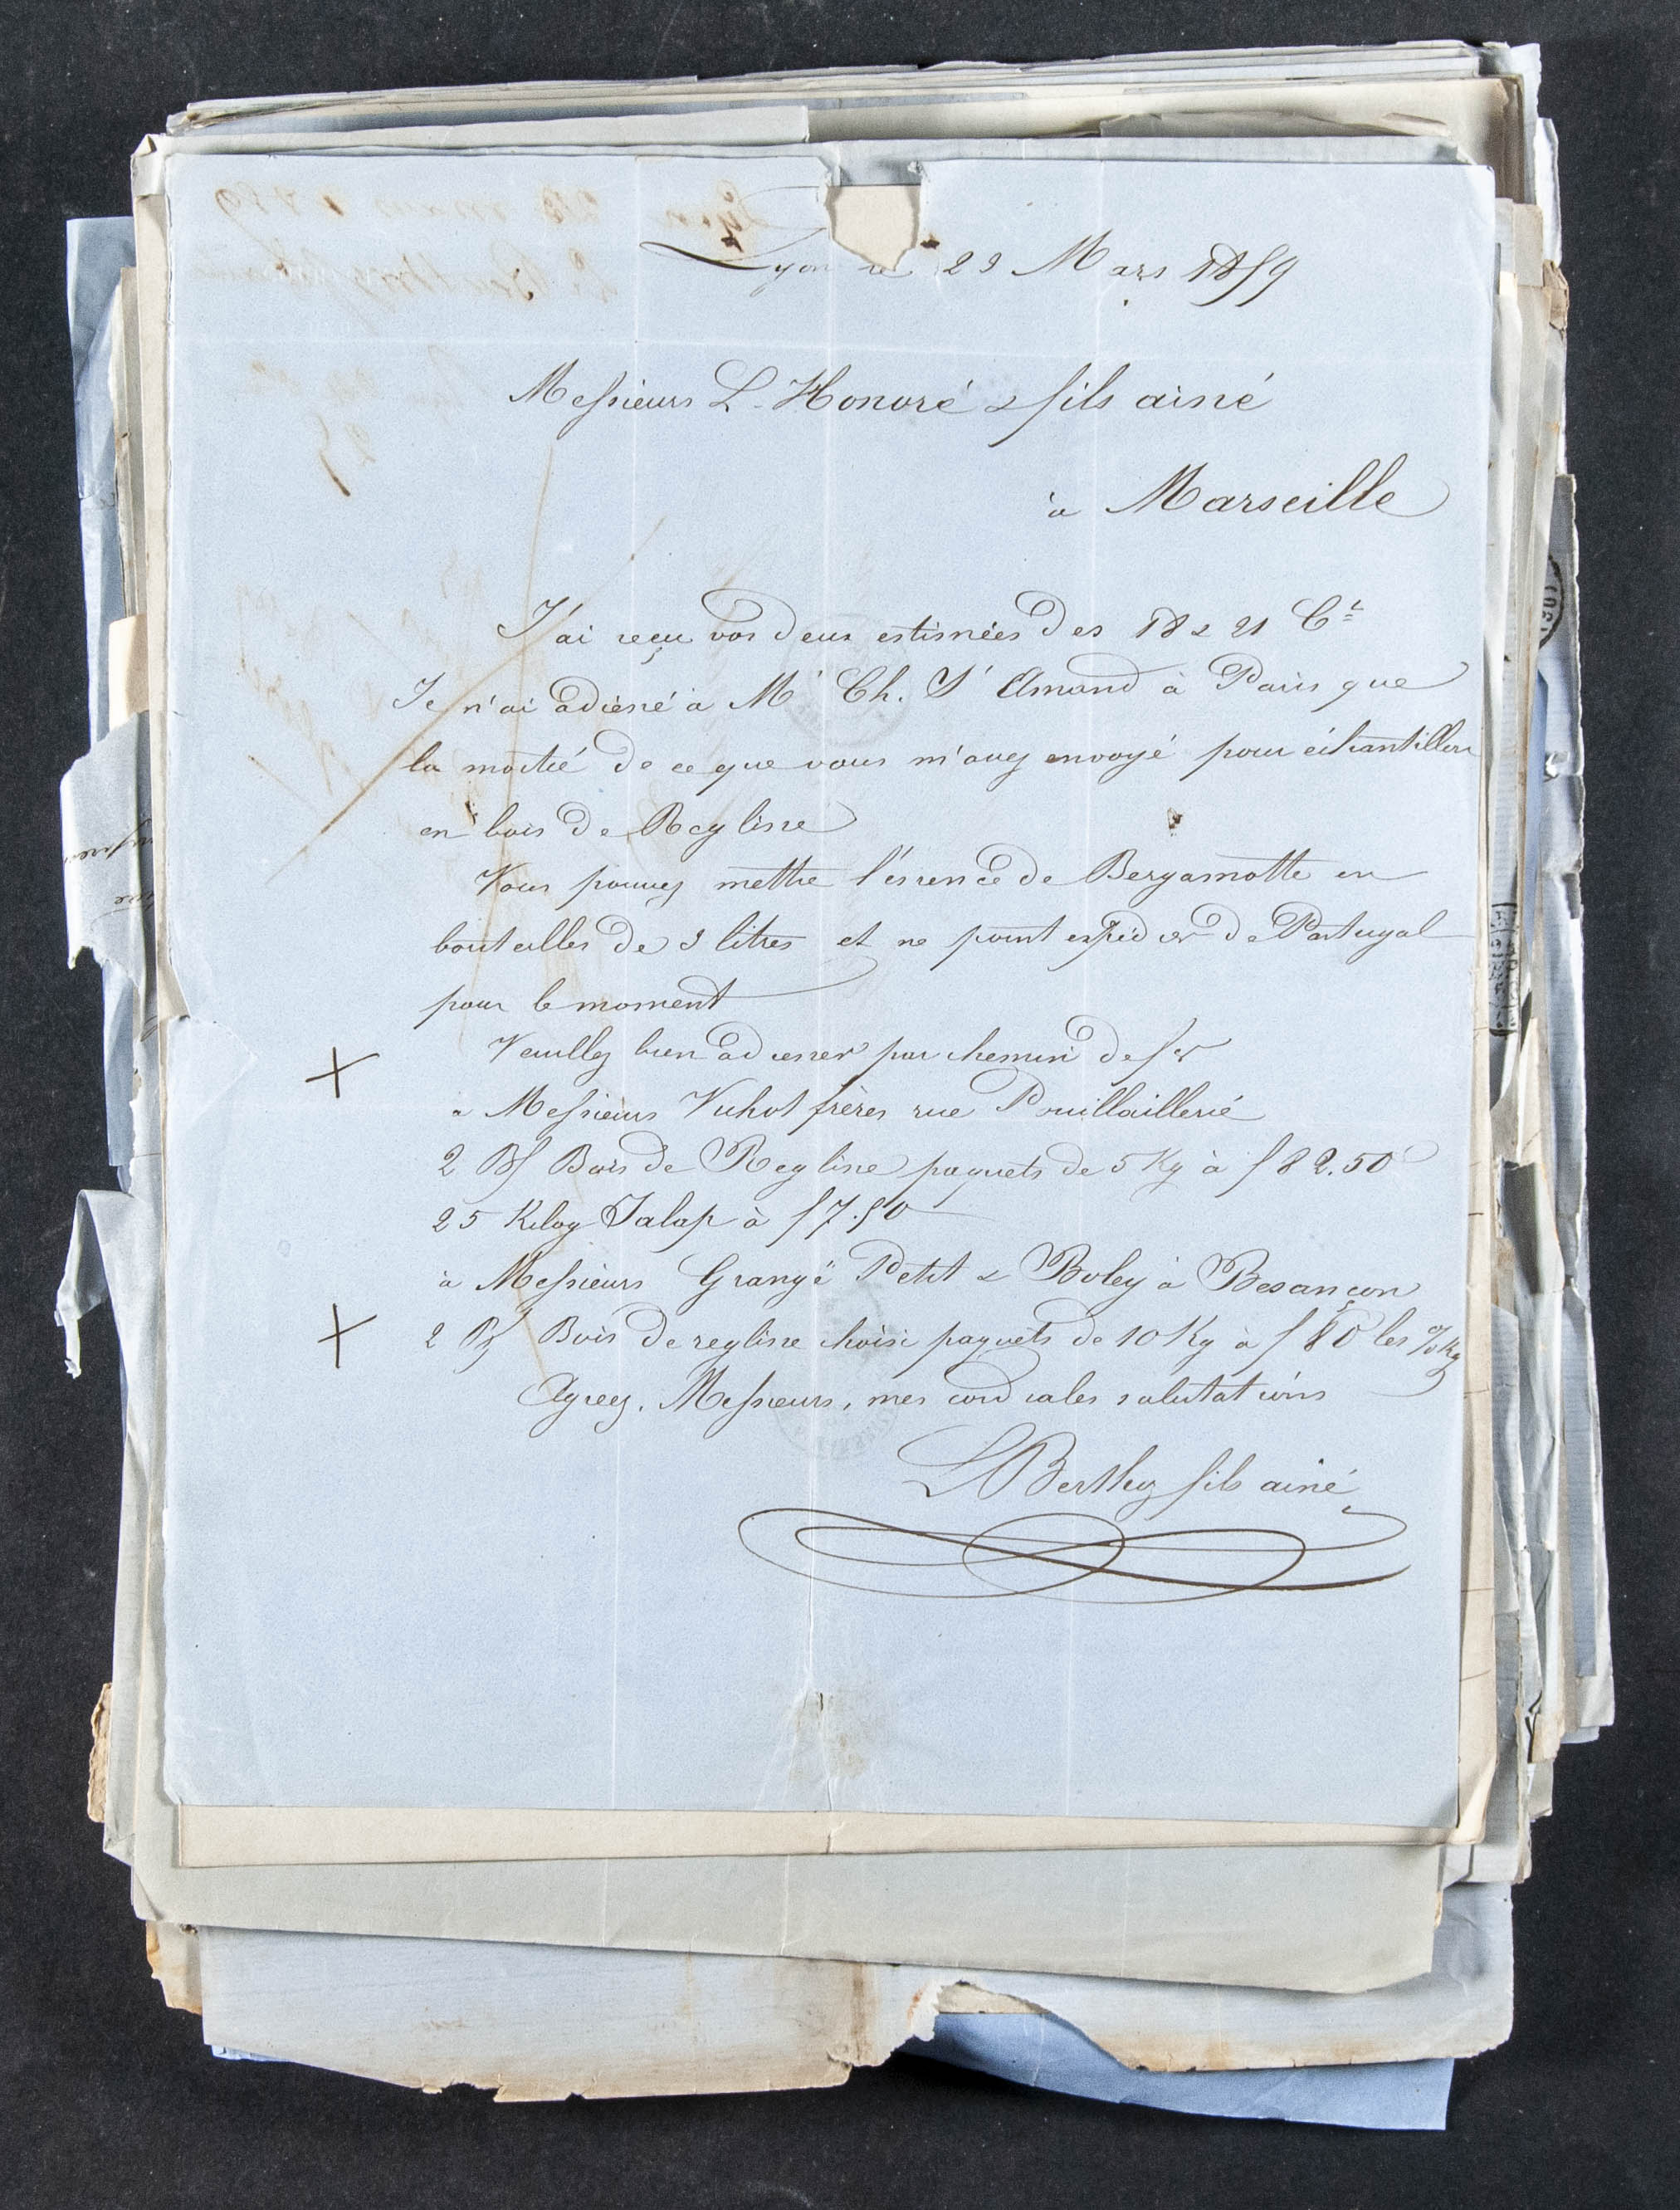 Lyon le 23 Mars 1859
Messieurs L. Honoré & fils ainé
à Marseille
J'ai reçu vos deux estimées des 18 & 21 Ct
Je n'ai adressé à Mr Ch. St Amand à Paris que
la moitié de ce que vous m'avez envoyé pour échantillon
en bois de Reglisse
Vous pouvez mettre l'essence de Bergamotte en
bouteilles de 3 litres et ne point expedier de Portugal
pour le moment
Veuillez bien adresser par chemin de fer
à Messieurs Vuhot frères rue Pouillaillerie
2 Bs Bois de Reglisse paquets de 5 Kg à f 82.50
25 Kilog Jalap à f 7.50
à Messieurs Grangé Petit & Boley à Besançon
2 Bs Bois de reglisse choisi paquets de 10 Kg à f 80 les % Kg
Agreez, Messieurs, mes cordiales salutations
L Berthez fils ainé